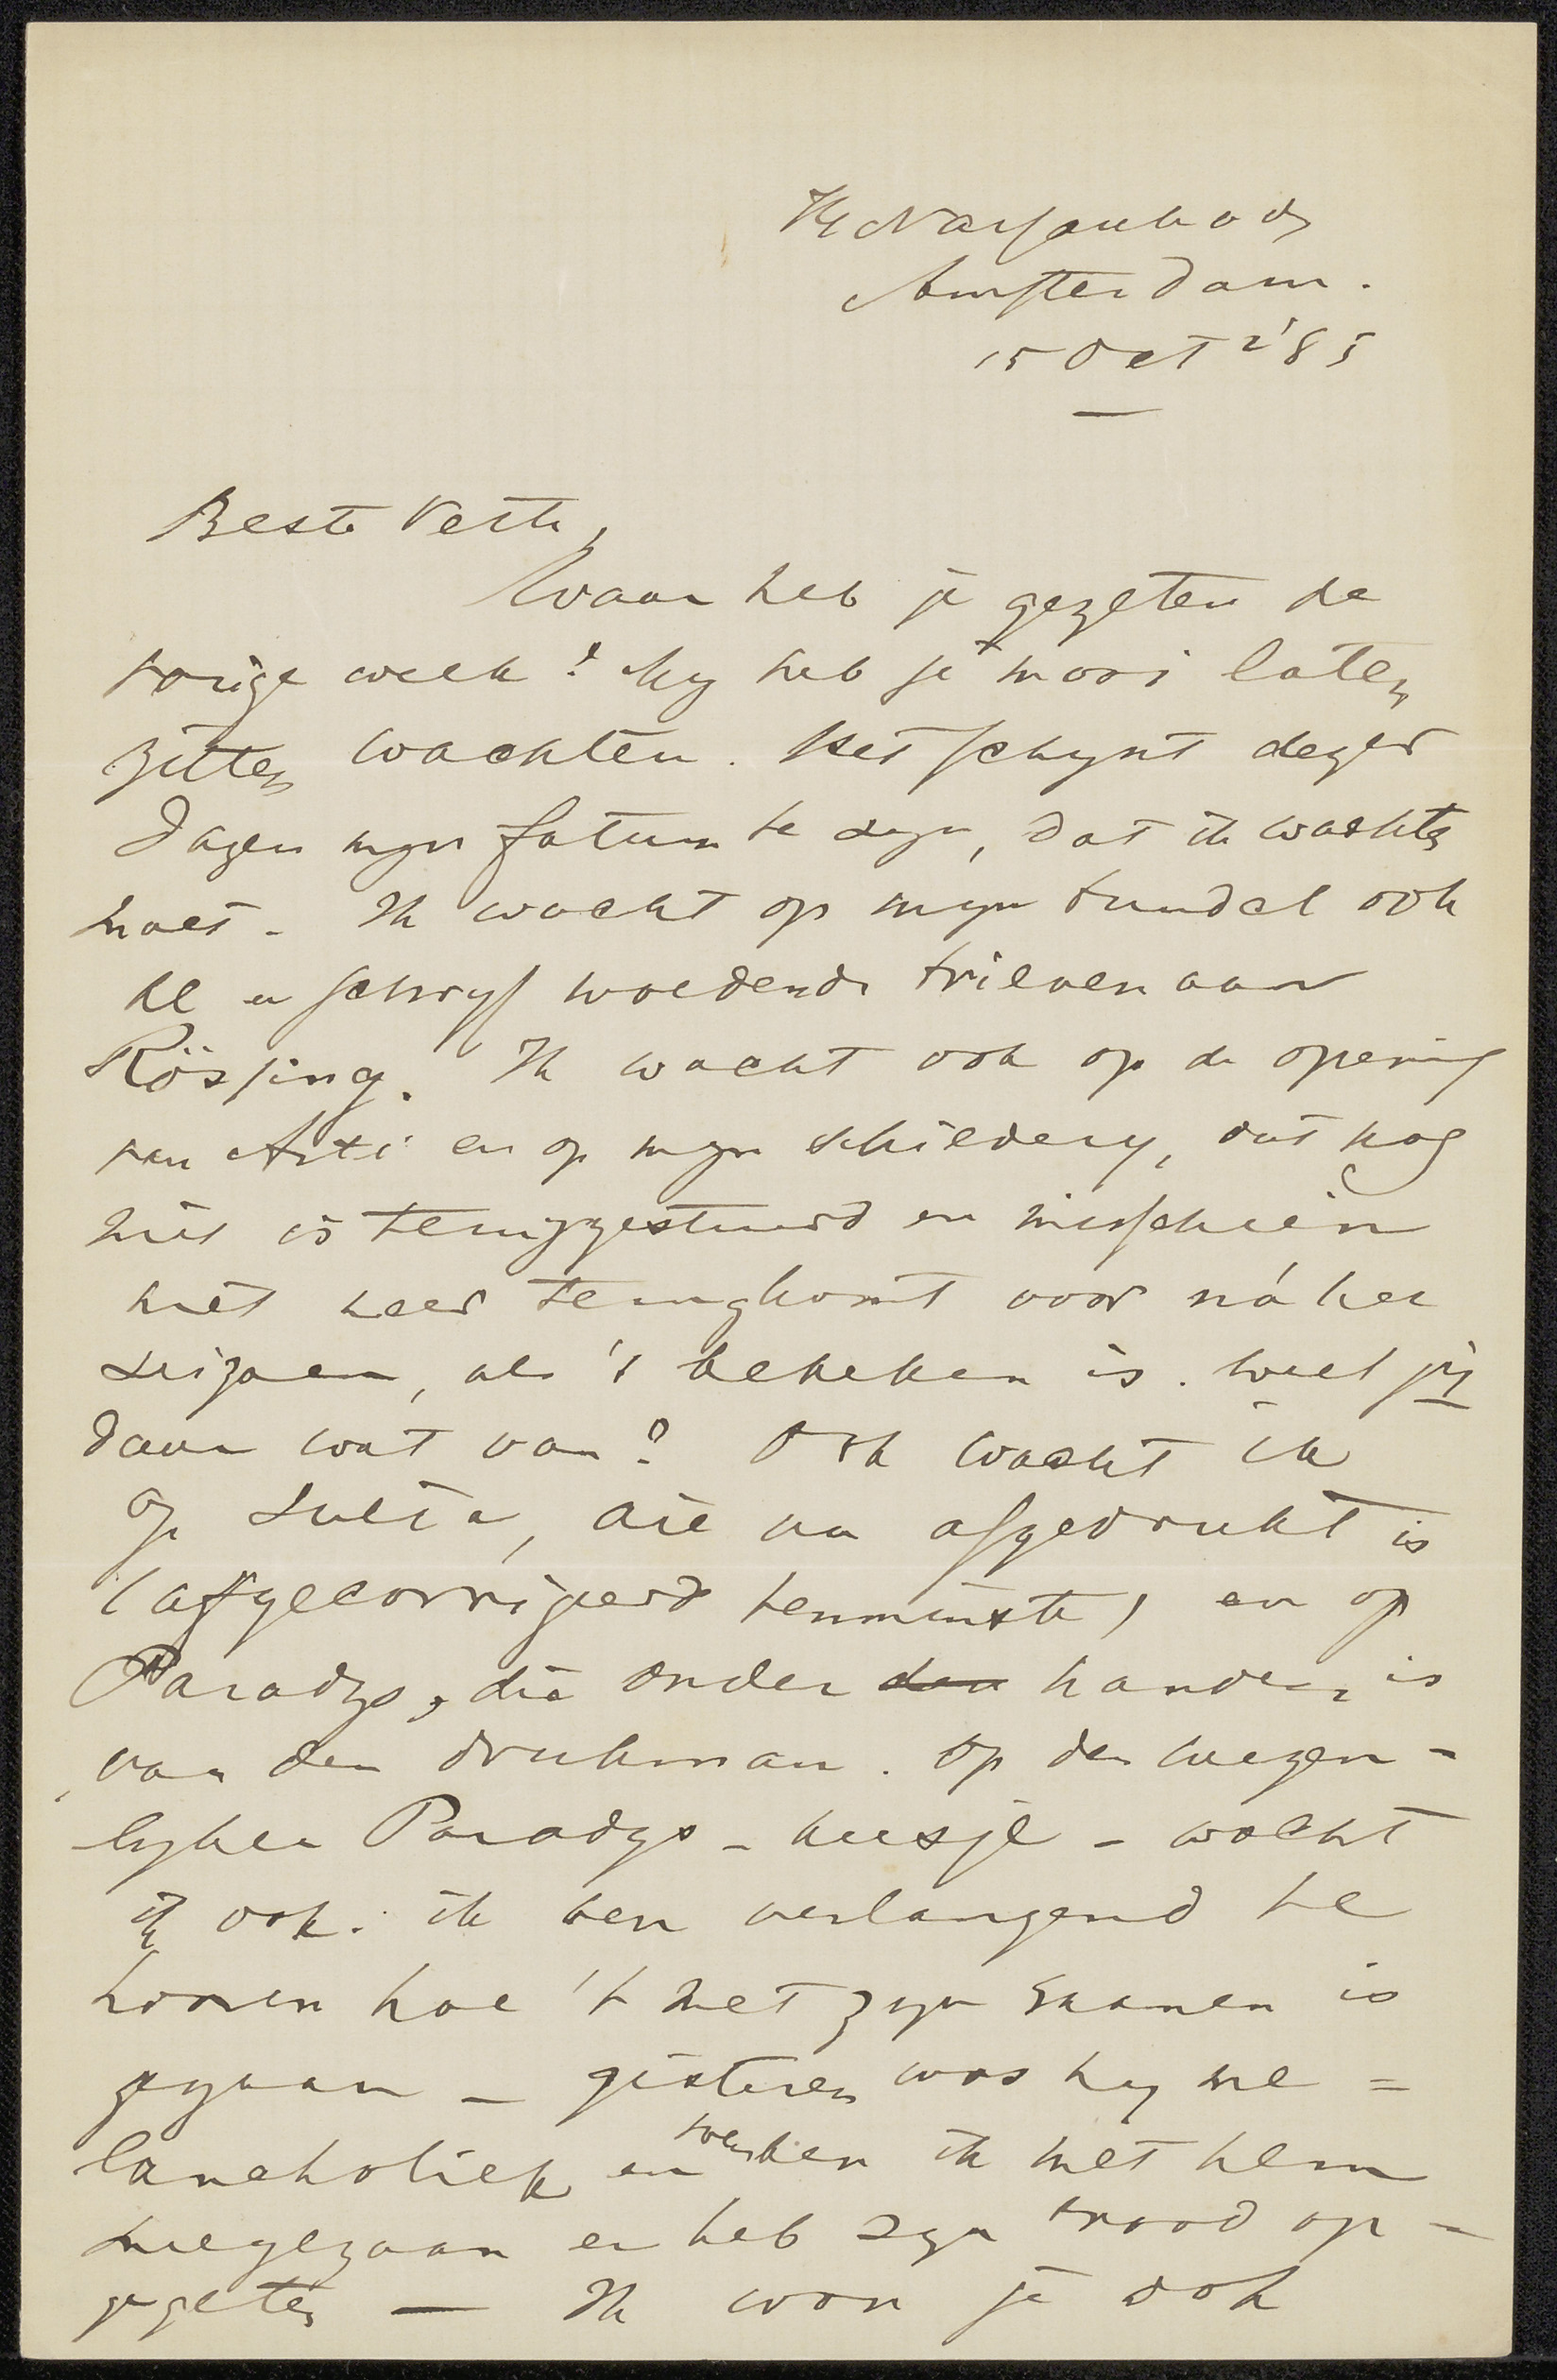 Marsenkade
Amsterdam.
15 Oct '85
Beste Veth,
Waar heb je gezeten de
vorige week? My heb je mooi laten
zitten wachten. Het schynt dezer
dagen myn fatum te zyn, dat ik wachten
moet. Ik wacht op myn bundel ook
al en schryf woedende brieven aan
Rössing. Ik wacht ook op de opening
van Arti en op myn schildery, dat nog
niet is teruggestuurd en misschien
niet weer terugkomt voor ná het
seizoen, als 't bekeken is. Weet jy
daar wat van? Ook wacht ik
op Julia, die nu afgedrukt is
(afgecorrigeerd tenminste) en op
Paradys, die onder den handen is
van den drukman. Op den wezen-
lyken Paradys - keesje - wacht
ik ook. ik ben verlangend te
hooren hoe 't met zyn examen is
gegaan — gisteren was hy me=
lancholiek en toen ben ik met hem
meegegaan en heb zyn brood op-
gegeten — Ik won je ook